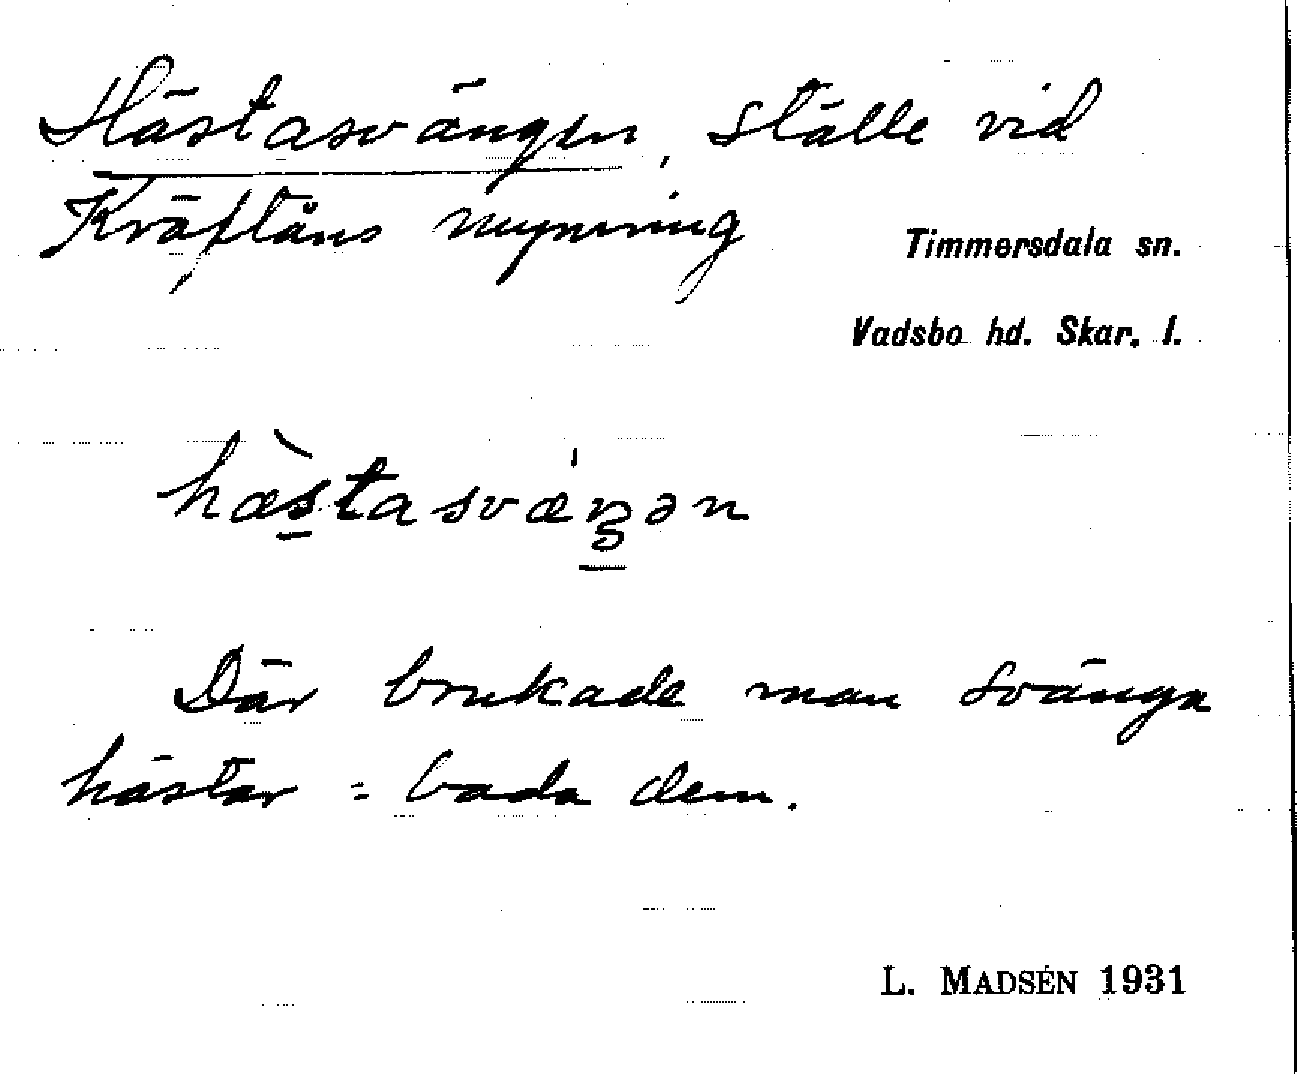 Hästasvängen, ställe vid
Kräftåns mynning
Timmersdala sn.
Vadsbo hd. Skar. l.
hæ̀stasvæŋən
Där brukade man svänga
hästar = bada dem.
L. MADSÉN 1931